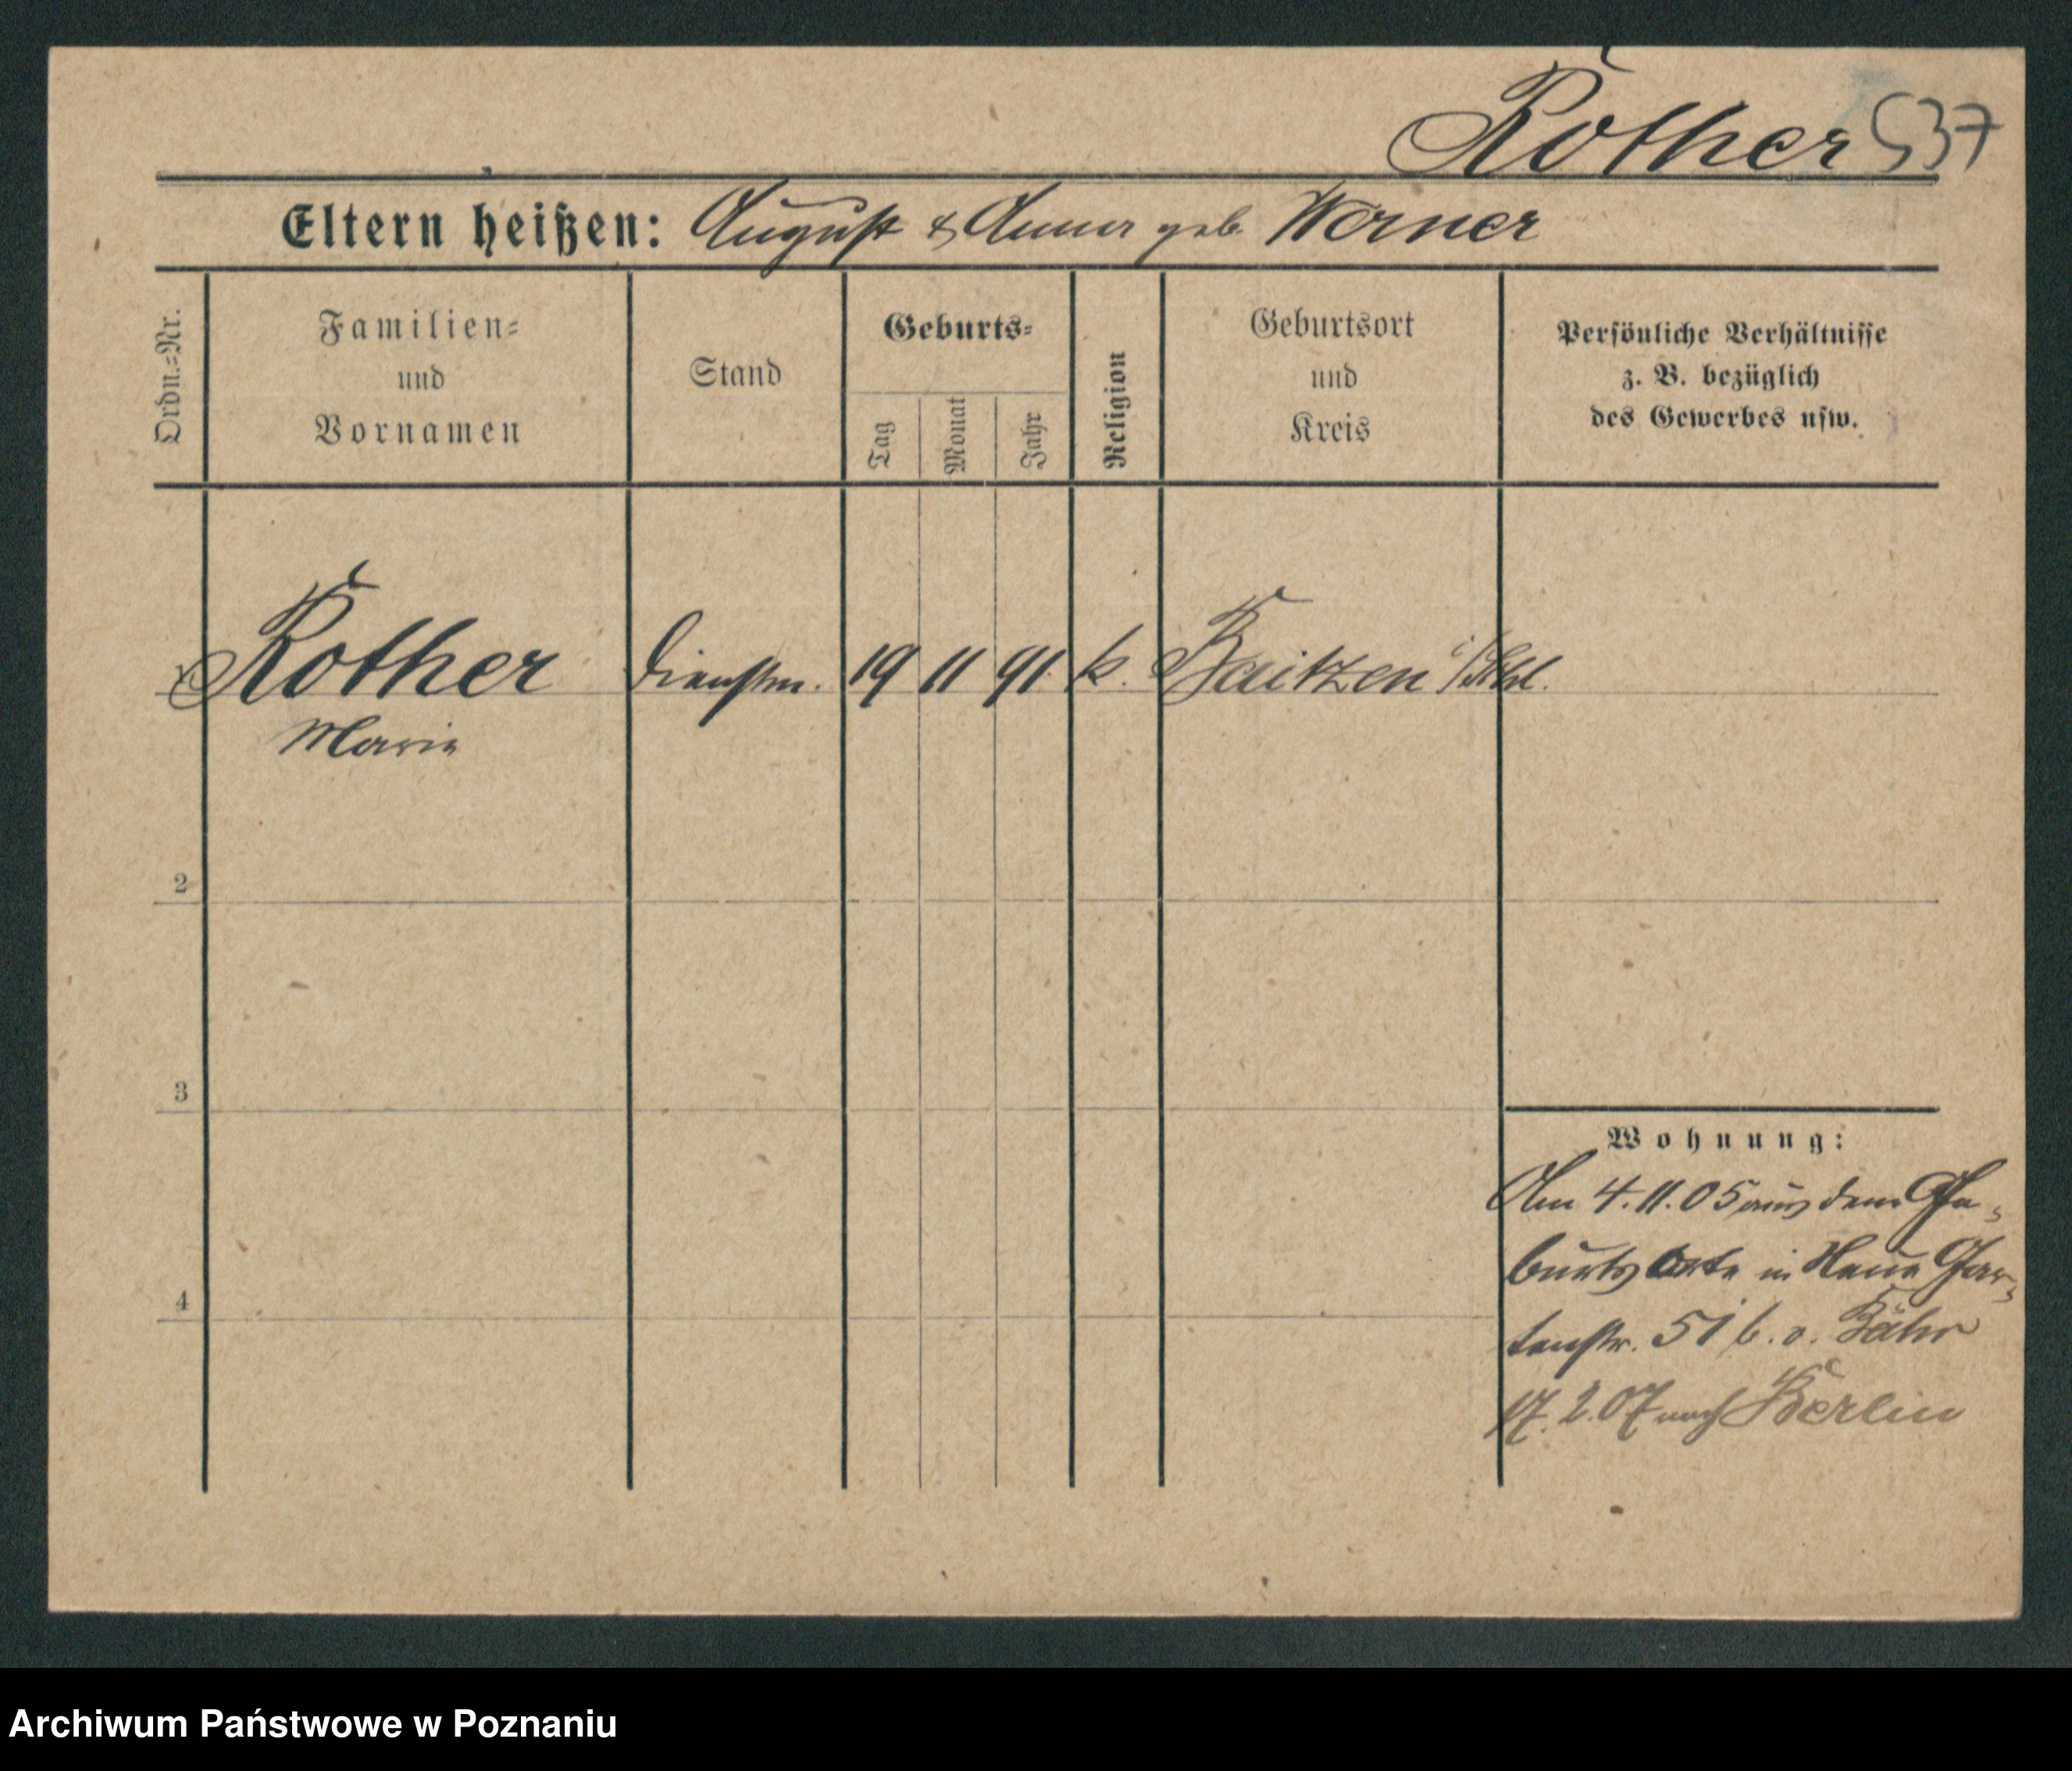 Rother 537
Eltern heißen: August & Anna geb. Werner
Ordn.=Nr.
Familien=
und
Vornamen
Stand
Geburts=
Tag
Monat
Jahr
Religion
Geburtsort
und
Kreis
Persönliche Verhältnisse
z. B. bezüglich
des Gewerbes usw.
Rother Dienstm. 19 11 91 k. Baitzen i/Schl.
Marie
2
3
4
Wohnung:
Am 4.11.05 aus dem Ge-
burtsorte in Neue Gar-
tenstr. 51 b. v.
17.2.07 nach Berlin
Archiwum Państwowe w Poznaniu